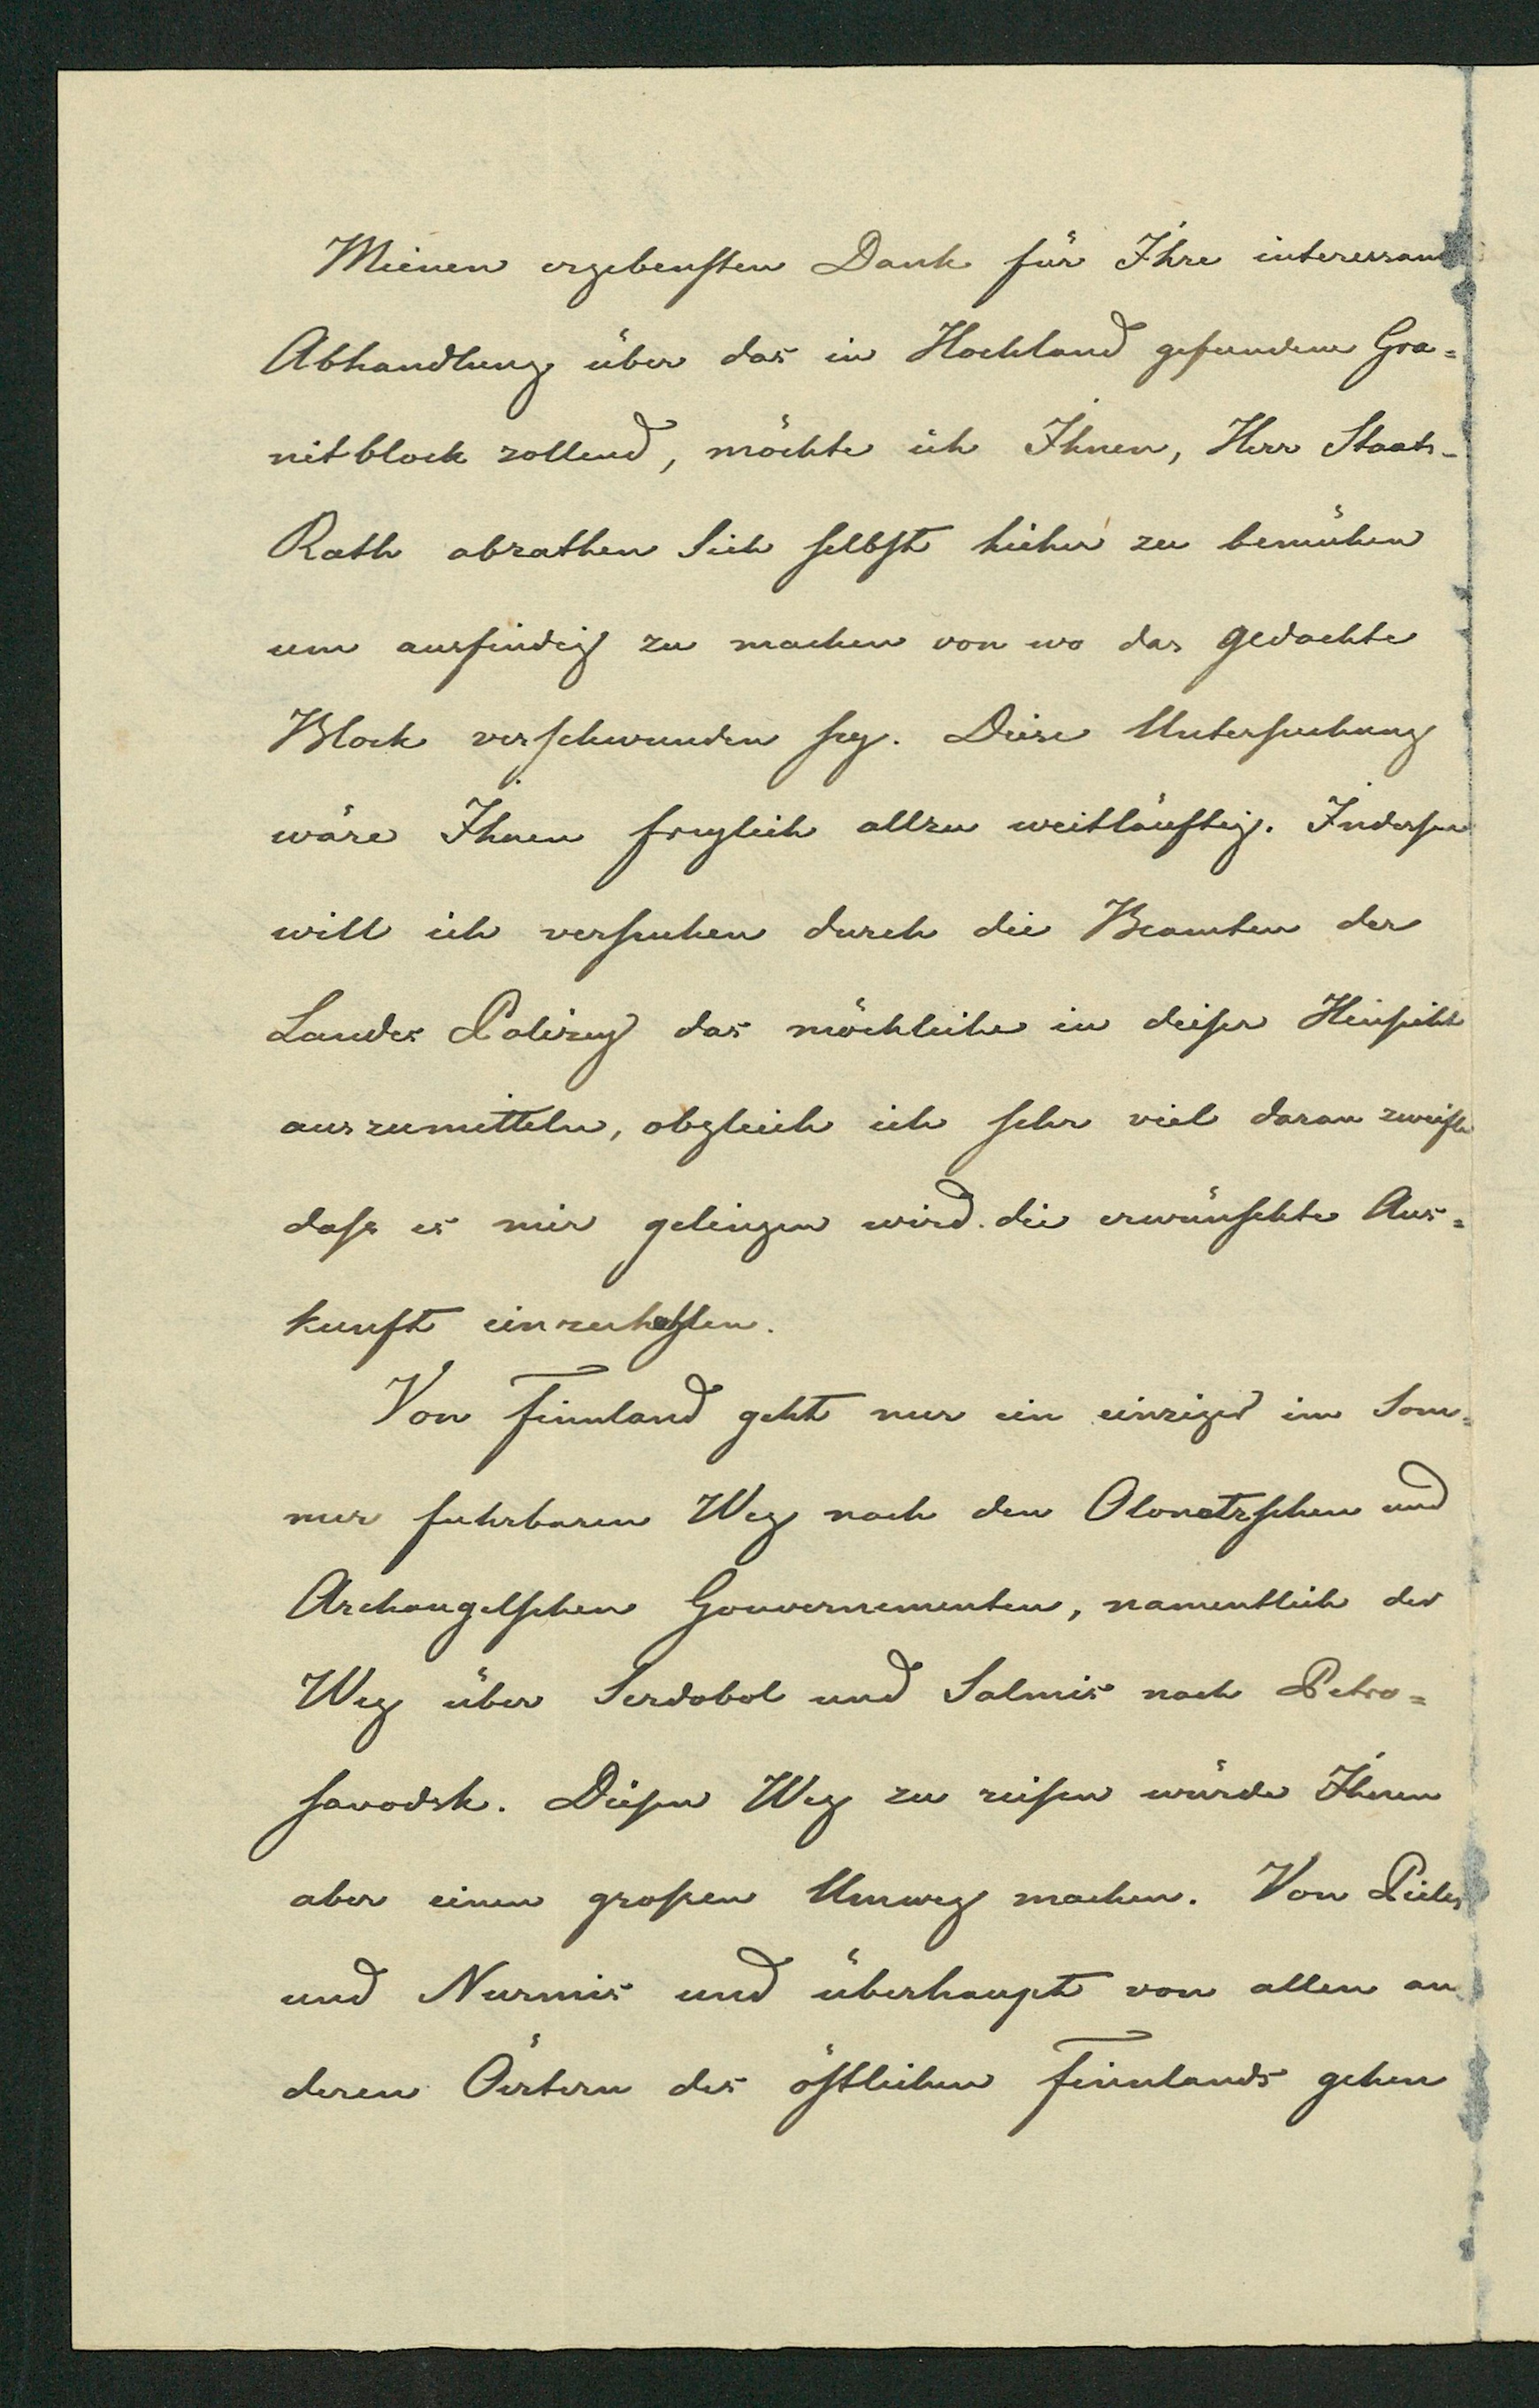 Meinen ergebensten Dank für Ihre interessant
Abhandlung über das in Hochland gefundene Gra=
nitblock zollend, möchte ich Ihnen, Herr Staats-
Rath abrathen Sich selbst hieher zu bemühen
um ausfindig zu machen von wo das gedachte
Block verschwunden sey. Diese Untersuchung
wäre Ihnen freylich allzu weitläuftig. Indessen
will ich versuchen durch die Beamten der
Landes Polizey das möchliche in dieser Hinsicht
auszumitteln, obgleich ich sehr viel daran zweifle
dass es mir gelingen wird die erwünschte Aus=
kunft einzuholen.
Von Finnland geht nur ein einziger im Som=
mer fuhrbaren Weg nach den Olonetzschen und
Archangelschen Gouvernementen, namentlich der
Weg über Serdobol und Salmis nach Petro=
savodsk. Diesen Weg zu reisen würde Ihnen
aber einen grossen Umweg machen. Von Pielis
und Nurmis und überhaupt von allen an
deren Örtern des östlichen Finnlands gehen